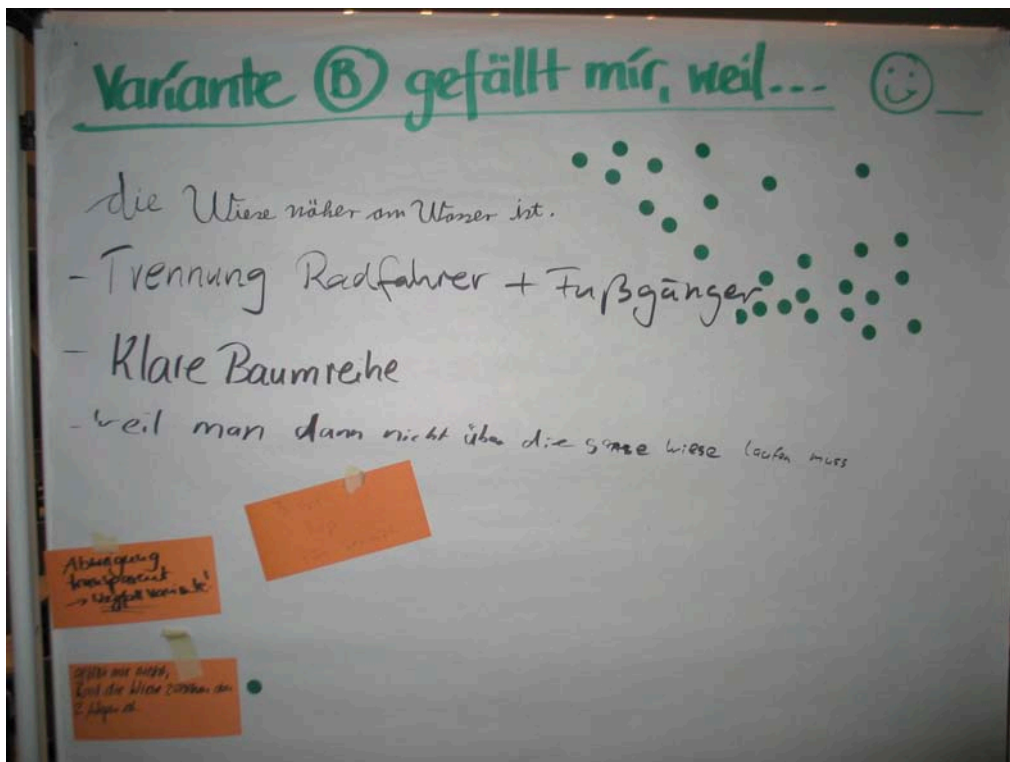 Variante B gefällt mir, weil...
die Wiese näher am Wasser ist.
- Trennung Radfahrer + Fußgänger
- Klare Baumreihe
- weil man dann nicht über die ganze wiese laufen muss
Abwägung
transparent
→ Wegfall Variante!
gefällt mir nicht,
weil die Wiese zwischen den
2 Wegen ist